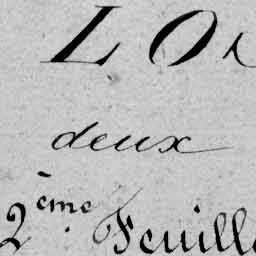 L O
deux
2ème Feuille